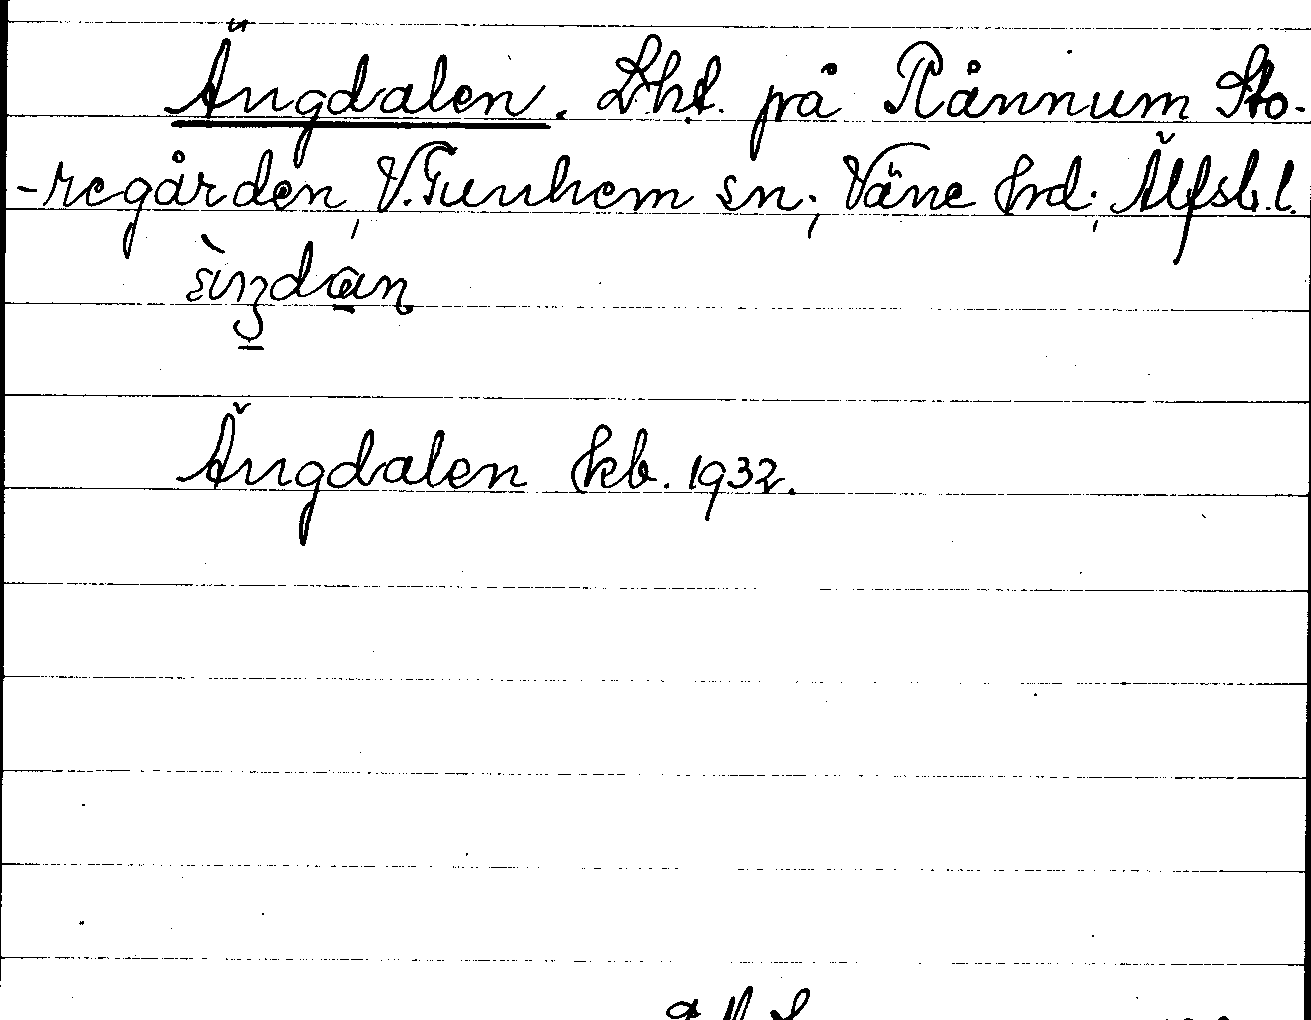 Ängdalen. Lht. på Rånnum Sto-
-regården, V. Tunhem sn; Väne hrd; Älfsb. l.
Ängdalen kb. 1932.